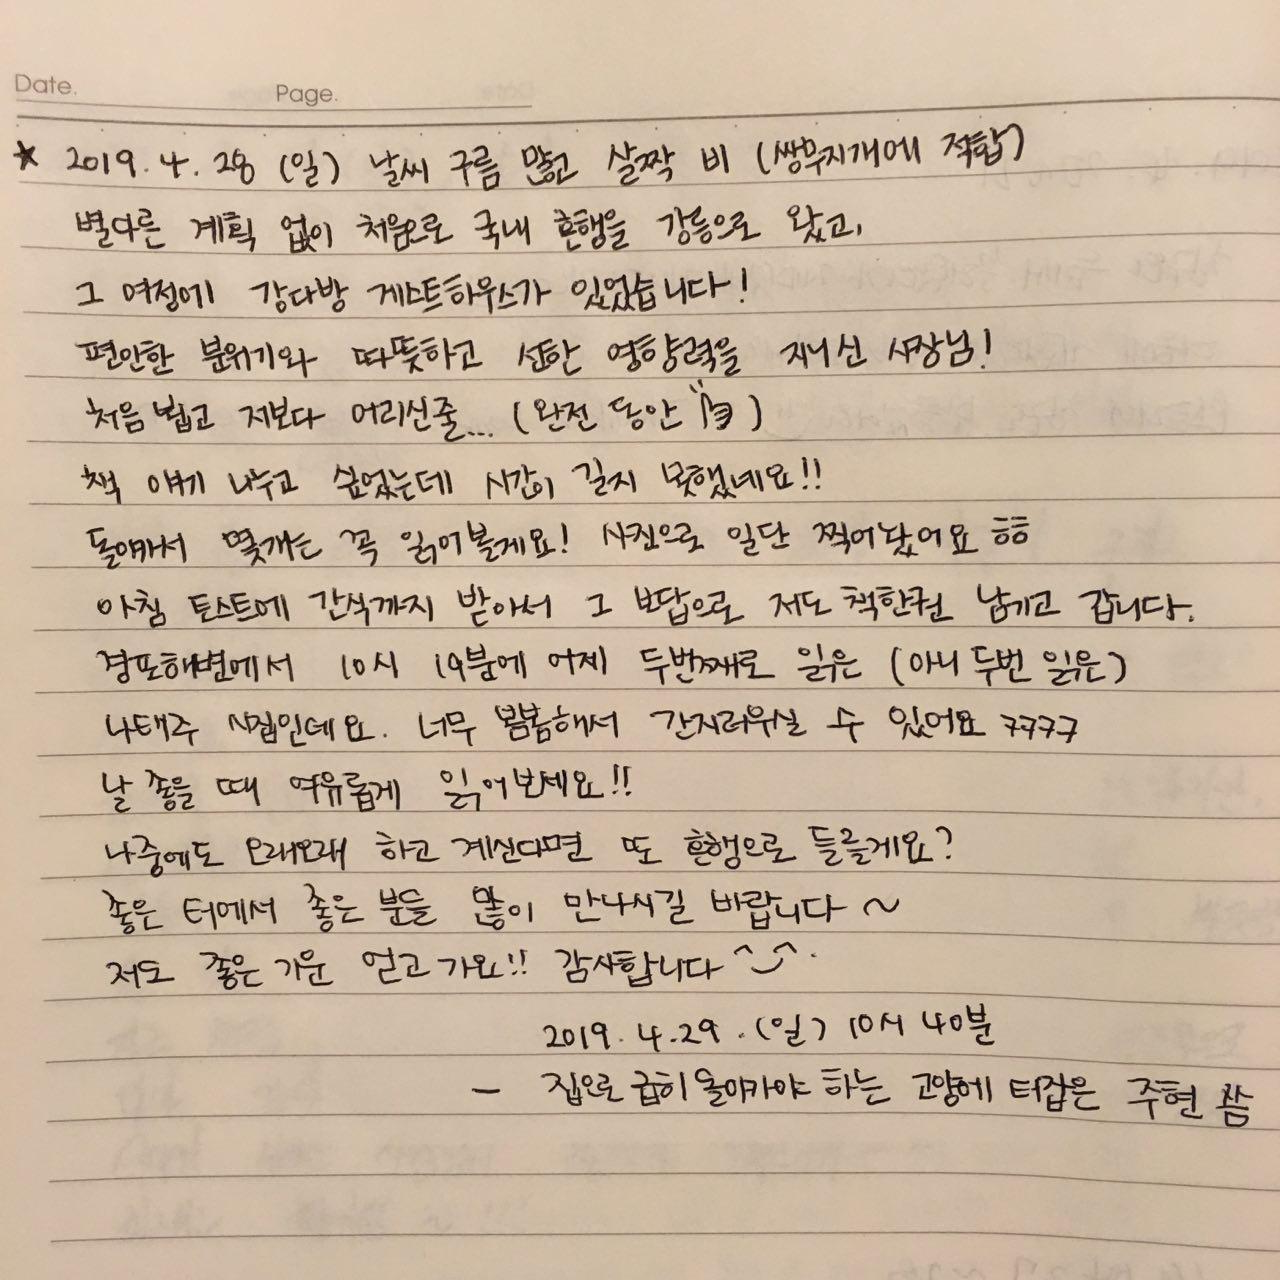 Date. Page.
★ 2019. 4. 28 (일) 날씨 구름 많고 살짝 비 (쌍무지개에 적합)
별다른 계획 없이 처음으로 국내 혼행을 강릉으로 왔고,
그 여정에 강다방 게스트하우스가 있었습니다!
편안한 분위기와 따뜻하고 선한 영향력을 지니신 사장님!
처음 뵙고 저보다 어리신줄... (완전 동안)
책 얘기 나누고 싶었는데 시간이 길지 못했네요!!
돌아가서 몇개는 꼭 읽어볼게요! 사진으로 일단 찍어놨어요 ㅎㅎ
아침 토스트에 간식까지 받아서 그 보답으로 저도 책한권 남기고 갑니다.
경포해변에서 10시 19분에 어제 두번째로 읽은 (아니 두번 읽은)
나태주 시집인데요. 너무 봄봄해서 간지러우실 수 있어요 ㅋㅋㅋㅋ
날 좋을 때 여유롭게 읽어보세요!!
나중에도 오래오래 하고 계신다면 또 혼행으로 들를게요?
좋은 터에서 좋은 분들 많이 만나시길 바랍니다 ~
저도 좋은 기운 얻고 가요!! 감사합니다
2019. 4. 29. (일) 10시 40분
— 집으로 급히 돌아가야 하는 고양에 터잡은 주현 씀